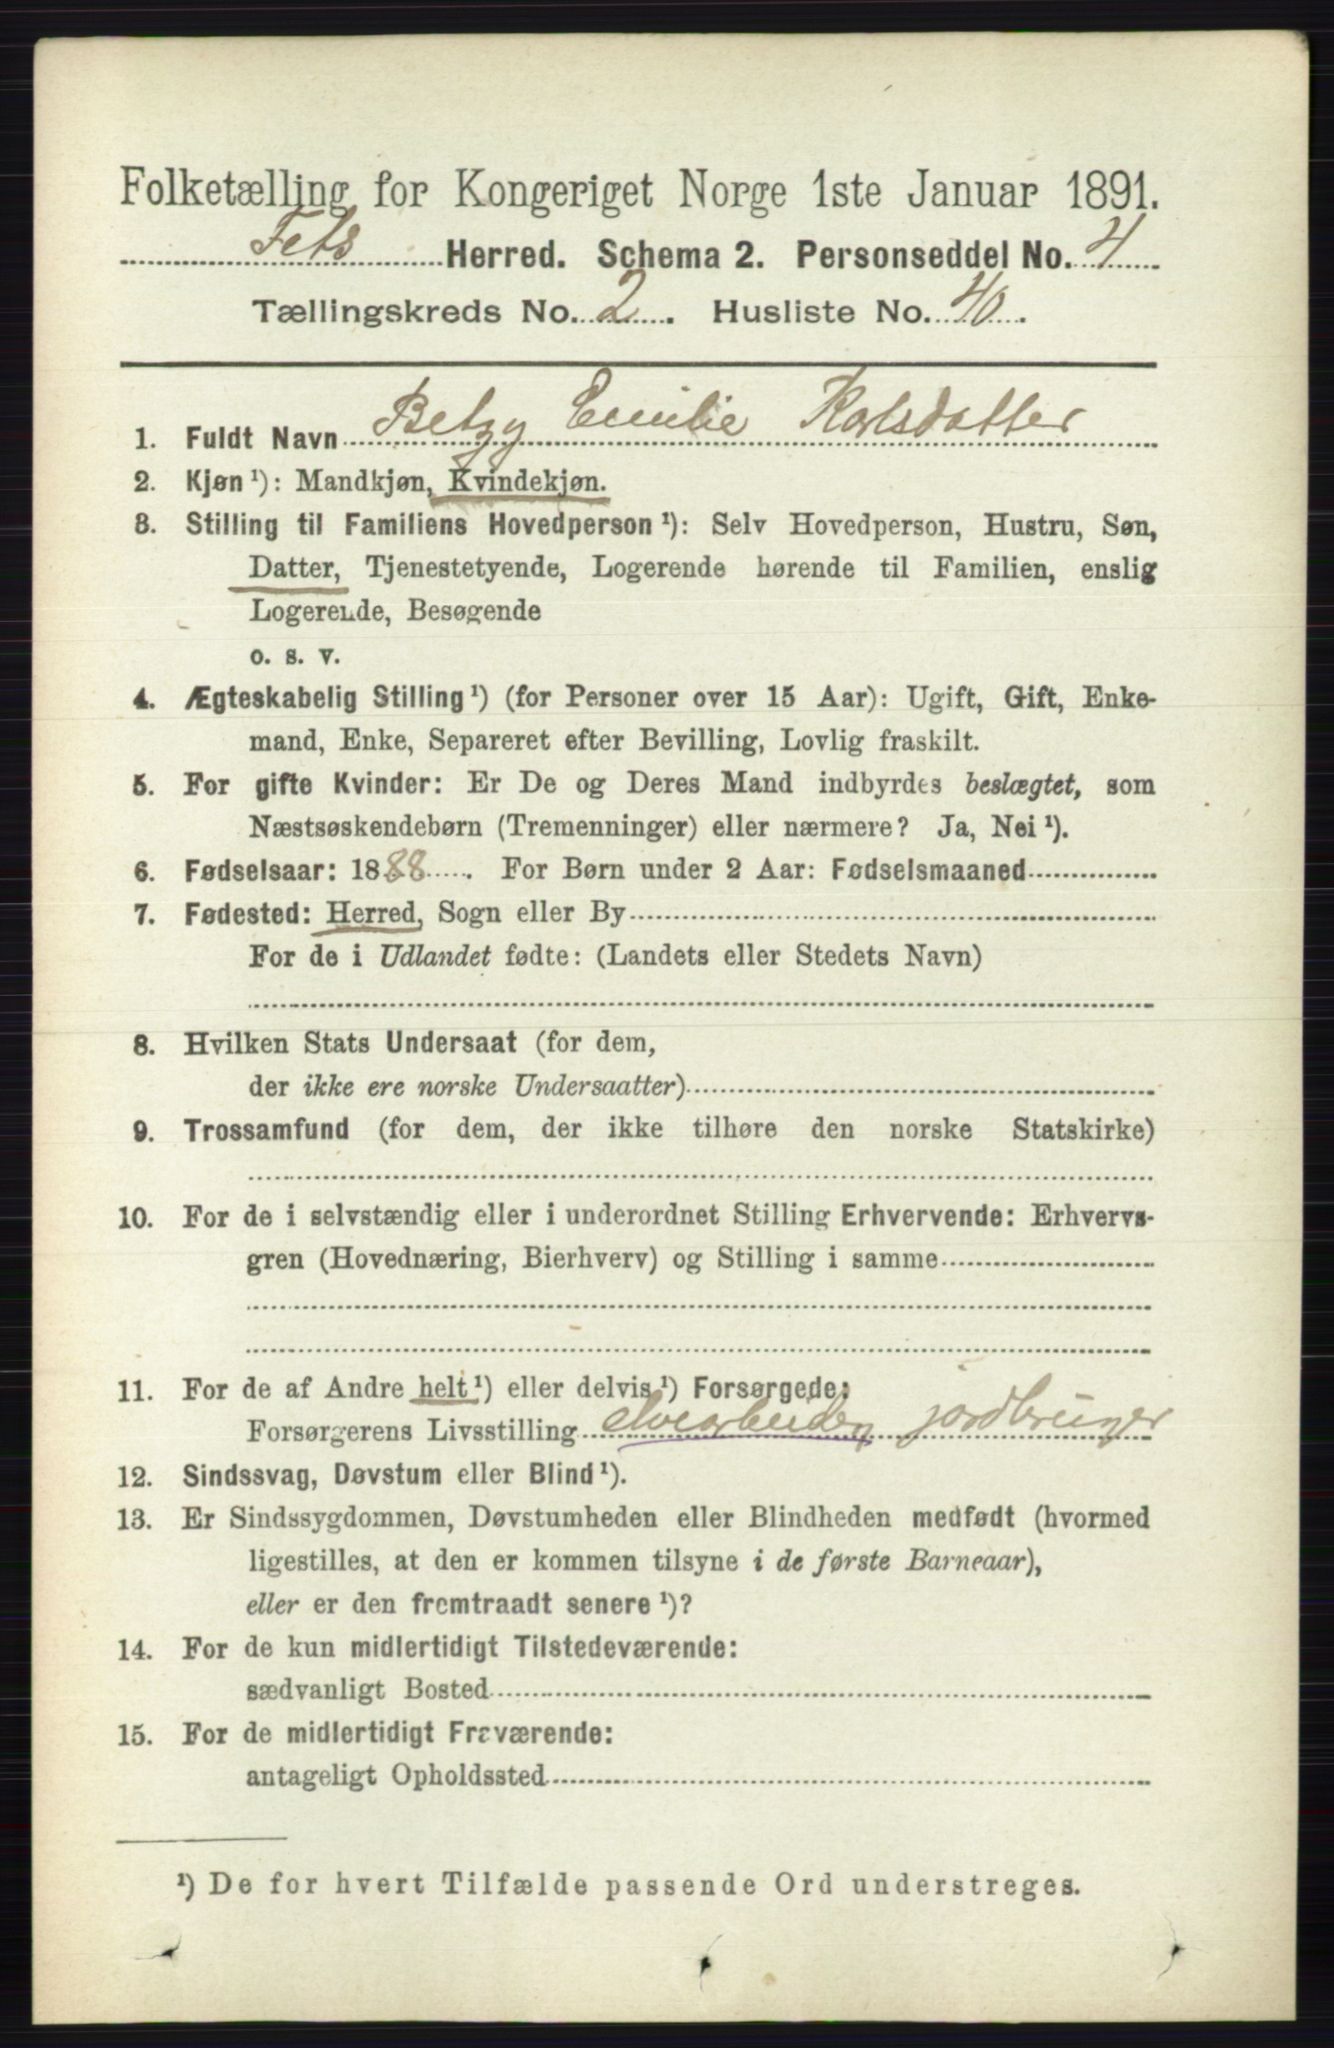 Folketælling for Kongeriget Norge 1ste Januar 1891.
Fets Herred. Schema 2. Personseddel No. 4
Tællingskreds No. 2. Husliste No. 40.
1. Fuldt Navn Betzy Emilie Karlsdatter
2. Kjøn ¹): Mandkjøn, Kvindekjøn.
3. Stilling til Familiens Hovedperson ¹): Selv Hovedperson, Hustru, Søn,
Datter, Tjenestetyende, Logerende hørende til Familien, enslig
Logerende, Besøgende
o. s. v.
4. Ægteskabelig Stilling ¹) (for Personer over 15 Aar): Ugift, Gift, Enke-
mand, Enke, Separeret efter Bevilling, Lovlig fraskilt.
5. For gifte Kvinder: Er De og Deres Mand indbyrdes beslægtet, som
Næstsøskendebørn (Tremenninger) eller nærmere? Ja, Nei ¹).
6. Fødselsaar: 1888. For Børn under 2 Aar: Fødselsmaaned
7. Fødested: Herred, Sogn eller By
For de i Udlandet fødte: (Landets eller Stedets Navn)
8. Hvilken Stats Undersaat (for dem,
der ikke ere norske Undersaatter)
9. Trossamfund (for dem, der ikke tilhøre den norske Statskirke)
10. For de i selvstændig eller i underordnet Stilling Erhvervende: Erhvervs-
gren (Hovednæring, Bierhverv) og Stilling i samme
11. For de af Andre helt ¹) eller delvis ¹) Forsørgede:
Forsørgerens Livsstilling elvearbeider jordbruger
12. Sindssvag, Døvstum eller Blind ¹).
13. Er Sindssygdommen, Døvstumheden eller Blindheden medfødt (hvormed
ligestilles, at den er kommen tilsyne i de første Barneaar),
eller er den fremtraadt senere ¹)?
14. For de kun midlertidigt Tilstedeværende:
sædvanligt Bosted
15. For de midlertidigt Fraværende:
antageligt Opholdssted
¹) De for hvert Tilfælde passende Ord understreges.